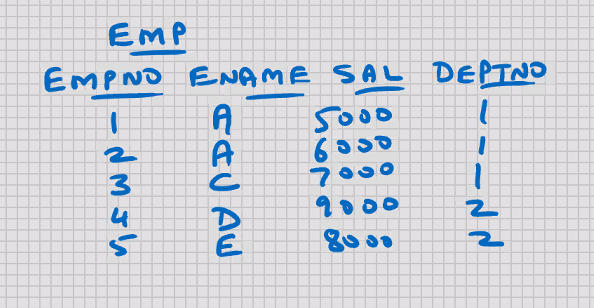 EMP
EMPNO ENAME SAL DEPTNO
1 A 5000 1
2 A 6000 1
3 C 7000 1
4 D 9000 2
5 E 8000 2